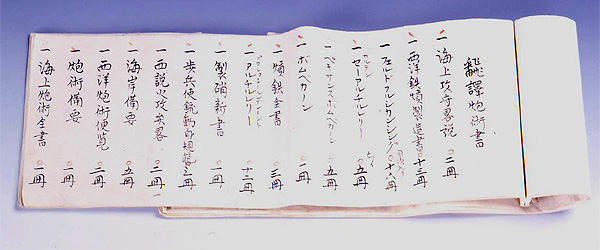 翻譯炮術書
一 海上攻守畧説 二冊
一 西洋鉄熕製造書 十三冊
一 ヱルドフルシカンシング 十六冊
一 セーアルチルレリー 五冊
一 ペキサンスボムベカノン 五冊
一 ボムベカノン 一冊
一 熕鉄全書 三冊
一 アルチルレリー 十二冊
一 製硝新書 一冊
一 歩兵使銃動身規範 二冊
一 西説火攻矢畧 二冊
一 海岸備要 五冊
一 西洋炮術便覧 二冊
一 炮術備要 一冊
一 海上炮術全書 一冊